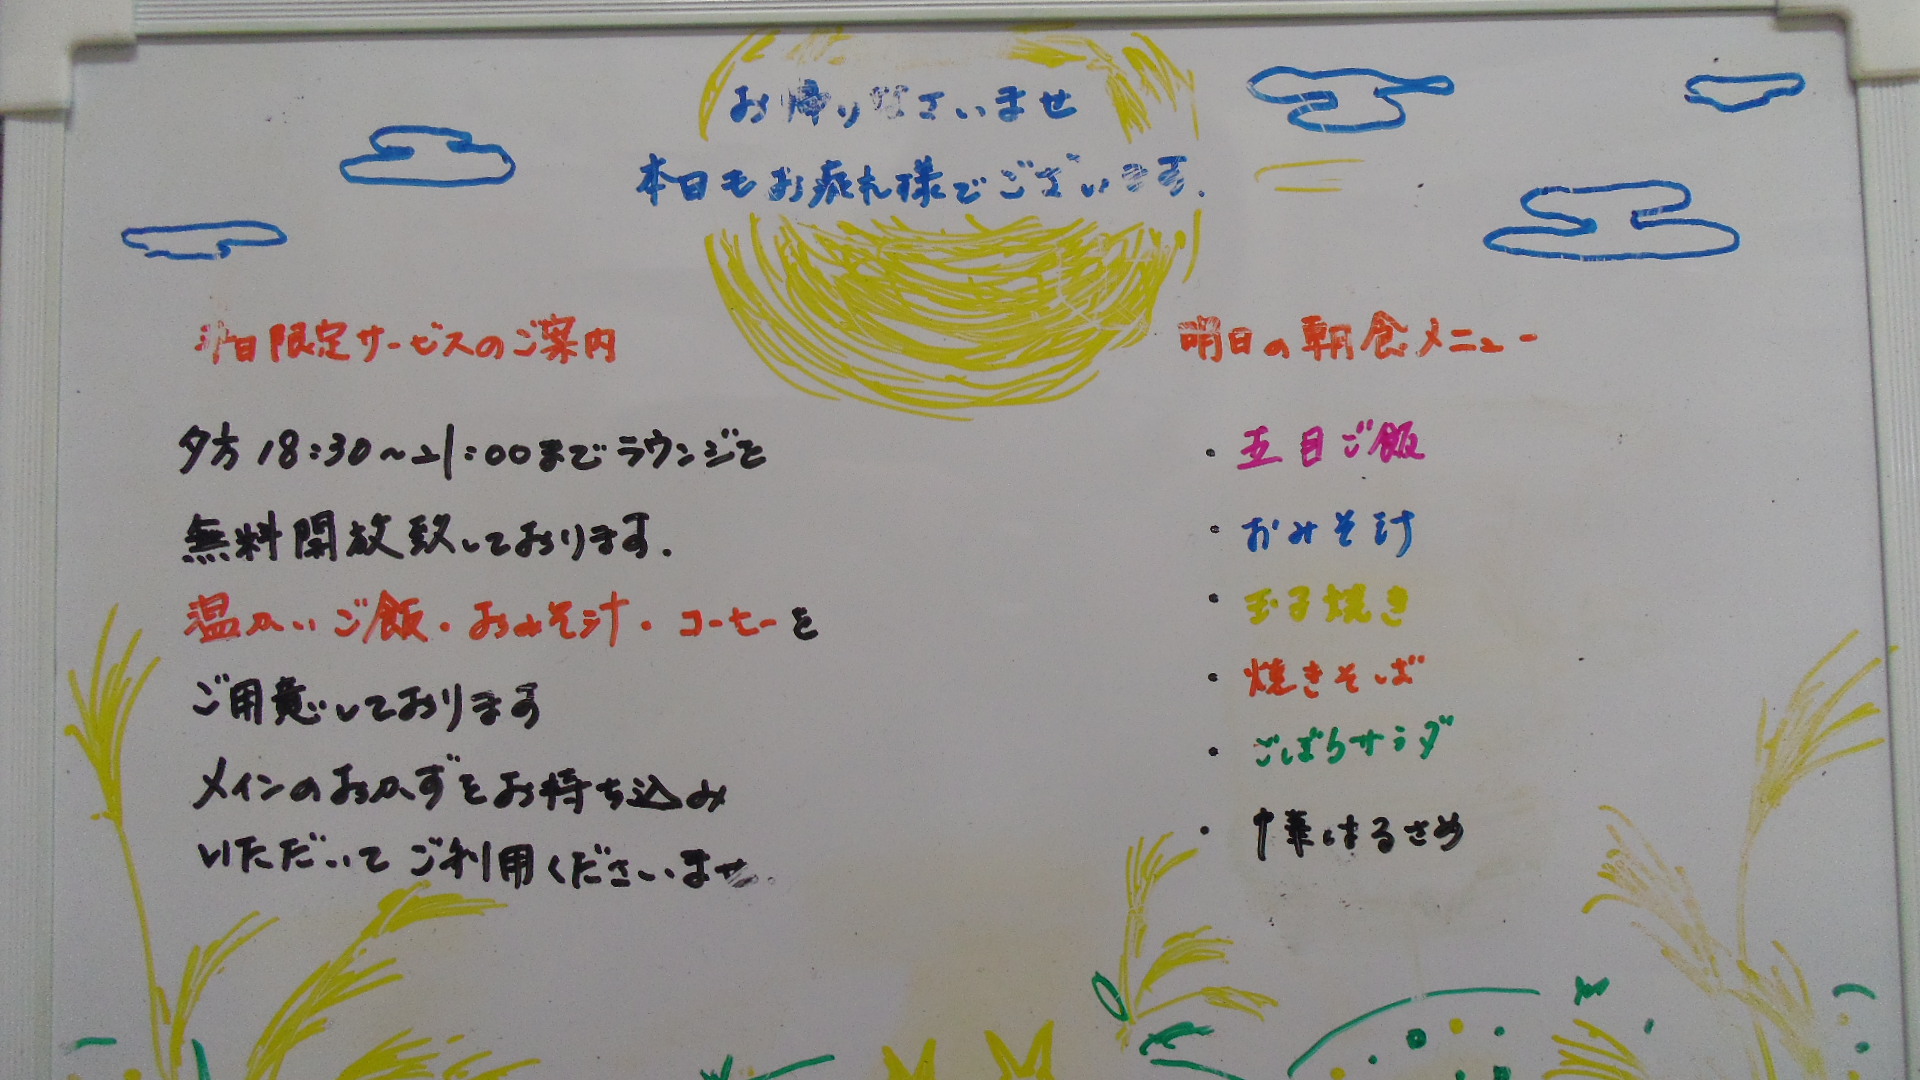 お帰りなさいませ
本日もお疲れ様でございます.
平日限定サービスのご案内
夕方18:30～21:00までラウンジを
無料開放致しております.
温かいご飯・おみそ汁・コーヒーを
ご用意しております
メインのおかずをお持ち込み
いただいてご利用くださいませ.
明日の朝食メニュー
・五目ご飯
・おみそ汁
・玉子焼き
・焼きそば
・ごぼうサラダ
・中華はるさめ